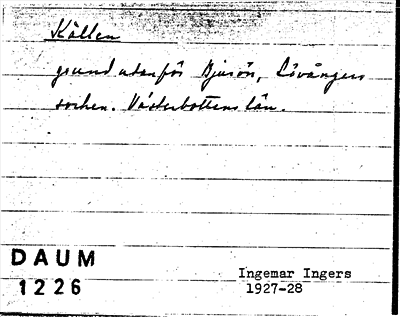 Kallen
grund utanför Bjurön, Lövångers
socken. Västerbottens län.
DAUM
1226
Ingemar Ingers
1927-28